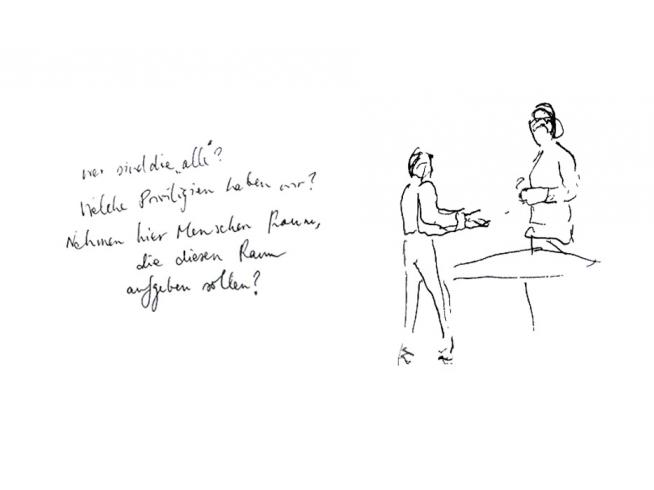 wer sind die „alle"?
Welche Privilegien haben wir?
Nehmen hier Menschen Raum,
die diesen Raum
aufgeben sollen?